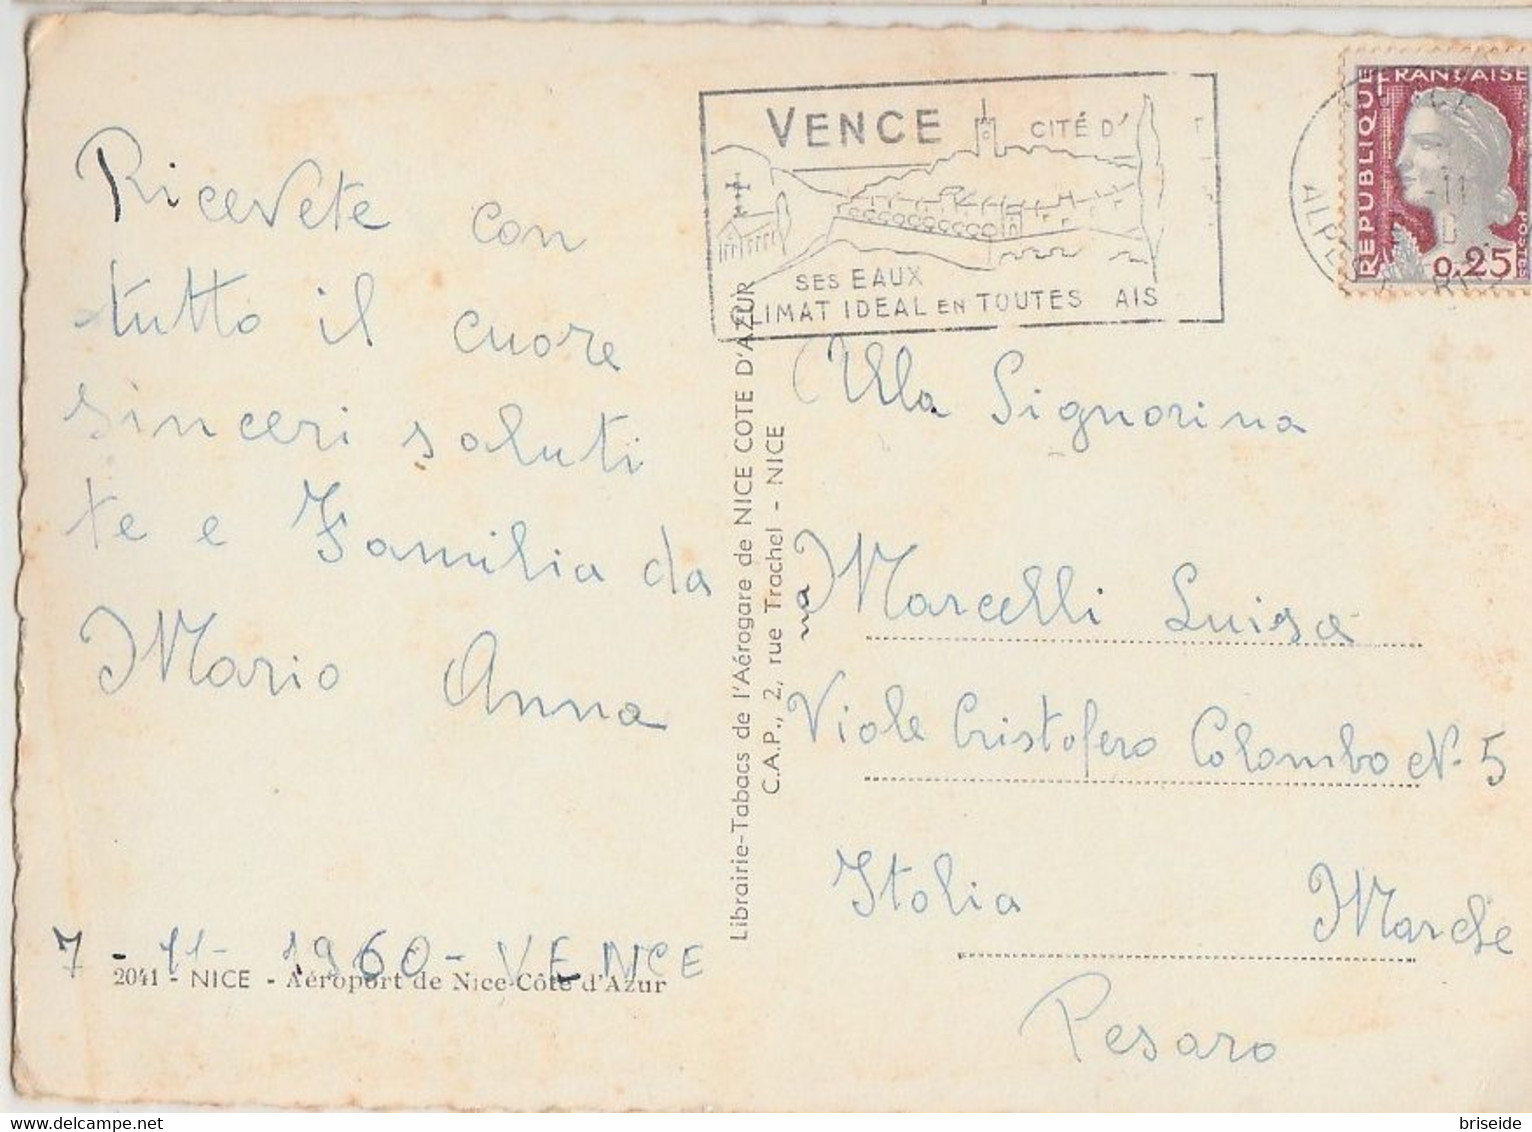 Ricevete con
tutto il cuore
sinceri saluti
te e Familia da
Mario Anna
7 - 11 - 1960 - VENCE
2041 - NICE - Aéroport de Nice-Côte d'Azur
Librairie-Tabacs de l'Aérogare de NICE COTE D'AZUR
C.A.P., 2, rue Trachel - NICE
VENCE
CITÉ D'
SES EAUX
CLIMAT IDEAL EN TOUTES AIS
REPUBLIQUE FRANÇAISE
0,25
POSTES
Alla Signorina
Marcelli Luisa
Viale Cristofero Colombo N. 5
Italia Marche
Pesaro
delcampe.net
briseide